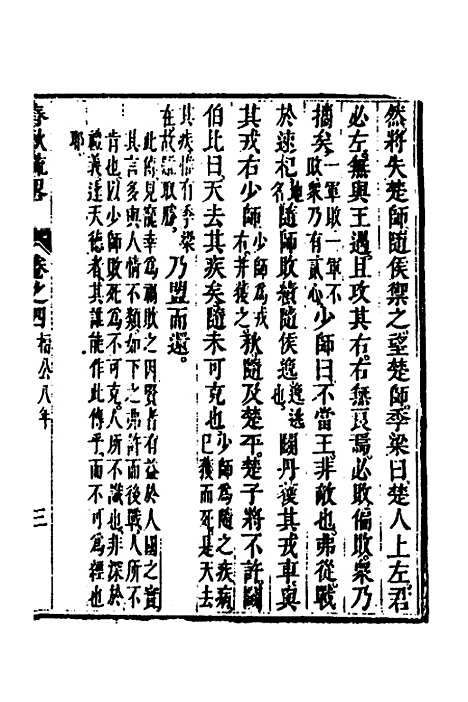 然將失楚師隨侯禦之望楚師季梁曰楚人上左君
必左無與王遇且攻其右右無良焉必敗偏敗衆乃
攜矣一軍敗一軍不敗衆乃有貳心少師曰不當王非敵也弗從戰
於速杞地名隨師敗績隨侯逸逸逃也鬬丹獲其戎車與
其戎右少師少師爲戎右并獲之秋隨及楚平楚子將不許鬬
伯比曰天去其疾矣隨未可克也少師爲隨之疾病已獲而死是天去
其疾隋有季梁在故難取勝乃盟而還
此傳見寵幸爲禍敗之因賢者有益於人國之實
其言多與人情不類如下之弗許而後戰人所不
肯也以少師敗死爲不可克人所不識也非深於
禮義達天德者其誰能作此傳乎而不可爲經也
耶
春秋疏畧
卷之四桓公八年
三